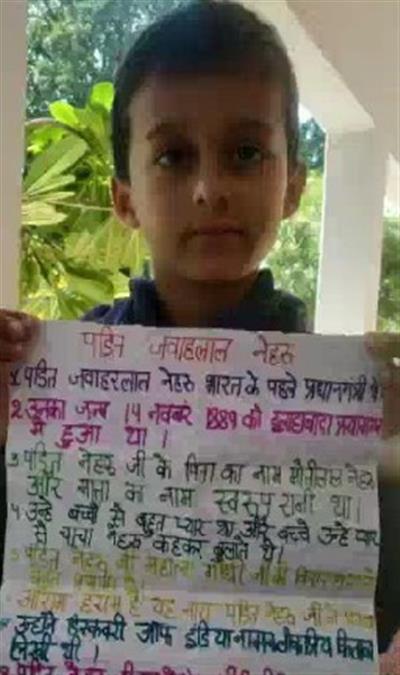 पंडित जवाहलाल नेहरू
1. पंडित जवाहरलाल नेहरू भारत के पहले प्रधानमंत्री थे
2. उनका जन्म 14 नवंबर 1889 को इलाहाबाद
में हुआ था ।
3 पंडित नेहरू जी के पिता का नाम मोतीलाल नेहरू
और माता का नाम स्वरूप रानी था ।
4. उन्हें बच्चों से बहुत प्यार था और बच्चे उन्हें प्यार
से चाचा नेहरू कहकर बुलाते थे ।
5 पंडित नेहरू जी महात्मा गांधी जी के
आराम हराम है यह नारा पंडित नेहरू जी ने
उन्होंने डिस्कवरी ऑफ इंडिया नामक लोकप्रिय किताब
लिखी थी ।